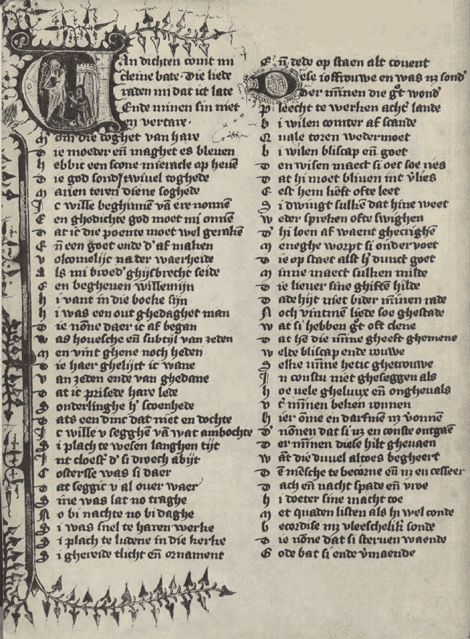 Van dichten comt mi
cleine bate Die liede
raden mi dat ict late
Ende minen sin niet
en vertare
M om die doghet van hare
D ie moeder eñ maghet es bleven
H ebbit een scone mieracle op hevē
D ie god sond' twiuel toghede
M arien teren diene soghede
I c wille beghinnē vā ere nonnē
E en ghedichte god moet mi onnē
D at ic die poente moet wel gerakē
E ñ een goet ende d' af maken
V olcomelijc na der waerheide
A ls mi broed' ghijsbrecht seide
E en begheuen willemijn
H i vant in die boeke sijn
H i was een out ghedaghet man
D ie nōne daer ic af began
W as houesche eñ subtijl van zeden
M en vint ghene noch heden
D ie haer ghelijct ic wane
V an zeden ende van ghedane
D at ic prisede hare lede
S onderlinghe h' scoenhede
D ats een dinc dat niet en dochte
I c wille v segghē vā wat ambochte
S i plach te wesen langhen tijt
I nt cloest' d' si droech abijt
C ostersse was si daer
D at seggic v al over waer
S ine was lat no traghe
N o bi nachte no bi daghe
S i was snel te haren werke
S i plach te ludene in die kerke
S i ghereide tlicht eñ ornament
E ñ dede op staen alt couent
Dese ioffrouwe en was nz sond'
Der minnen die gt' wond'
P leecht te werken acht' lande
B i wilen comter af scande
Q uale toren wedermoet
B i wilen bliscap eñ goet
D en wisen maect si oec soe ries
D at hi moet bliuen int v'lies
E est hem lieft ofte leet
S i dwingt sulkē dat hine weet
W eder spreken ofte swighen
D' hi loen af waent ghecrighē
M eneghe worpt si ondervoet
D ie op staet alst h' dunct goet
M inne maect sulken milde
D ie lieuer sine ghiftē hilde
D ade hijt niet bider m̄nen rade
N och vintmēe liede soe ghestade
W at si hebbēe gt' oft clene
D at hē die minne gheeft ghemene
W elde bliscap ende rouwe
S elke minne hetic ghetrouwe
I n constu niet gheseggen als
H oe vele gheluux eñ ongheuals
V t' m̄nen beken ronnen
H ier ōme en darfmē nz v'onnen
D' nonnen dat si nz en conste ontgaē
D er m̄nen diese hilt gheuaen
W āt die duuel altoes begheert
D ē mēsche te becorne eñ nz en cesseert
D ach eñ nacht spade eñ vroe
H i doeter sine macht toe
M et quaden listen als hi wel conde
B ecordise m; vleeschelik' sonde
D ie nōne dat si steruen waende
G ode bat si ende v'maende